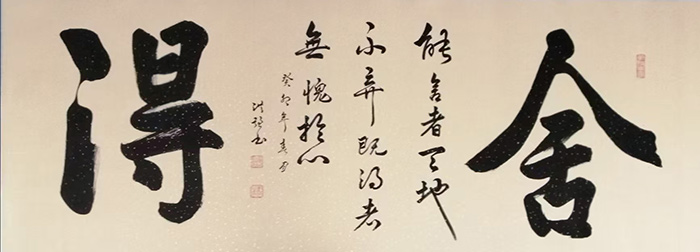 舍
能舍者天地
不弃既得者
無愧於心
癸卯年春
书
得